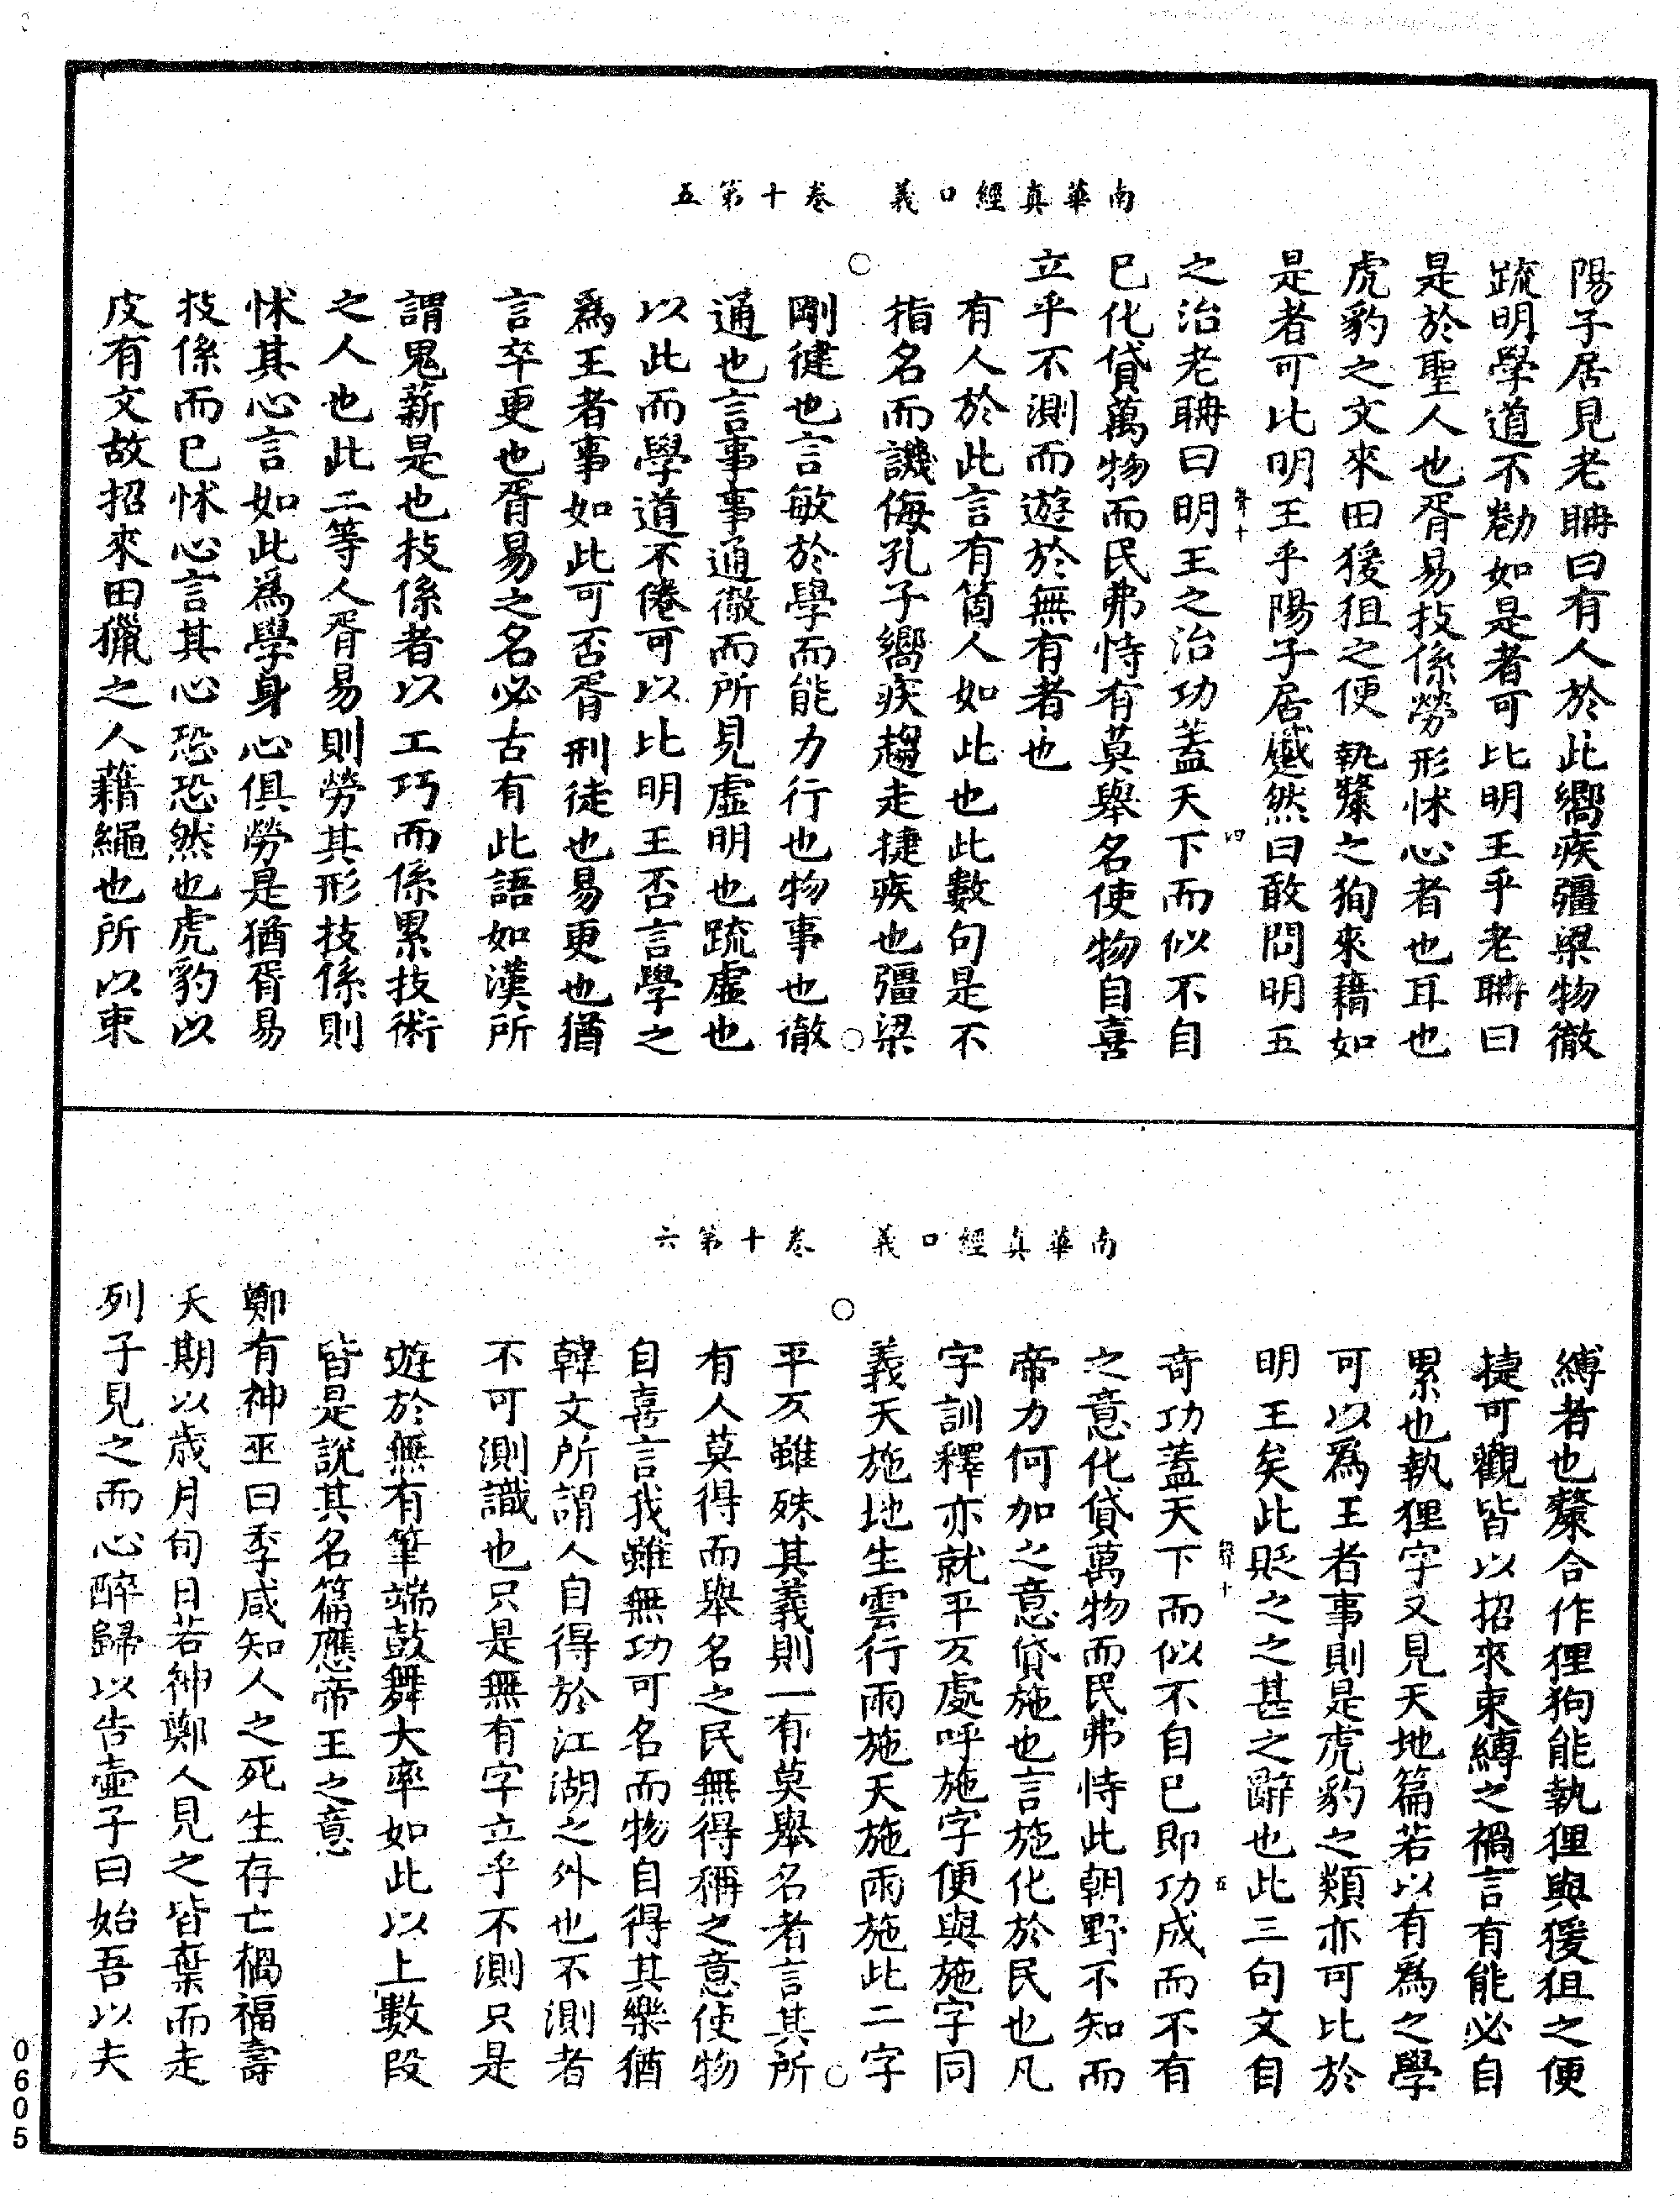 南華真經口義　卷十第五
陽子居見老聃曰有人於此嚮疾彊梁物徹
䟽明學道不勌如是者可比明王乎老聃曰
是於聖人也胥易技係勞形怵心者也耳也
虎豹之文來田猨狙之便執斄之狗來藉如
是者可比明王乎陽子居蹵然曰敢問明五
之治老聃曰明王之治功蓋天下而似不自
已化貸萬物而民弗恃有莫舉名使物自喜
立乎不測而遊於無有者也
有人於此言有箇人如此也此數句是不
指名而譏侮孔子嚮疾趨走捷疾也彊梁
剛健也言敏於學而能力行也物事也徹
通也言事事通徹而所見虛明也䟽虛也
以此而學道不倦可以比明王否言學之
為王者事如此可否胥刑徒也易更也猶
言卒更也胥易之名必古有此語如漢所
謂鬼薪是也技係者以工巧而係累技術
之人也此二等人胥易則勞其形技係則
怵其心言如此為學身心俱勞是猶胥易
技係而已怵心言其心恐恐然也虎豹以
皮有文故招來田獵之人藉繩也所以束
南華真經口義　卷十第六
縛者也斄合作狸狗能執狸與猨狙之便
捷可觀皆以招來束縛之禍言有能必自
累也執狸字又見天地篇若以有為之學
可以為王者事則是虎豹之類亦可比於
明王矣此貶之之甚之辭也此三句文自
奇功蓋天下而似不自已即功成而不有
之意化貸萬物而民弗恃此朝野不知而
帝力何加之意貸施也言施化於民也凡
字訓釋亦就平仄處呼施字便與施字同
義天施地生雲行雨施天施雨施此二字
平仄雖殊其義則一有莫舉名者言其所
有人莫得而舉名之民無得稱之意使物
自喜言我雖無功可名而物自得其樂猶
韓文所謂人自得於江湖之外也不測者
不可測識也只是無有字立乎不測只是
遊於無有筆端鼓舞大率如此以上數段
皆是說其名篇應帝王之意
鄭有神巫曰季咸知人之死生存亡禍福壽
夭期以歲月旬日若神鄭人見之皆棄而走
列子見之而心醉歸以告壺子曰始吾以夫
0605